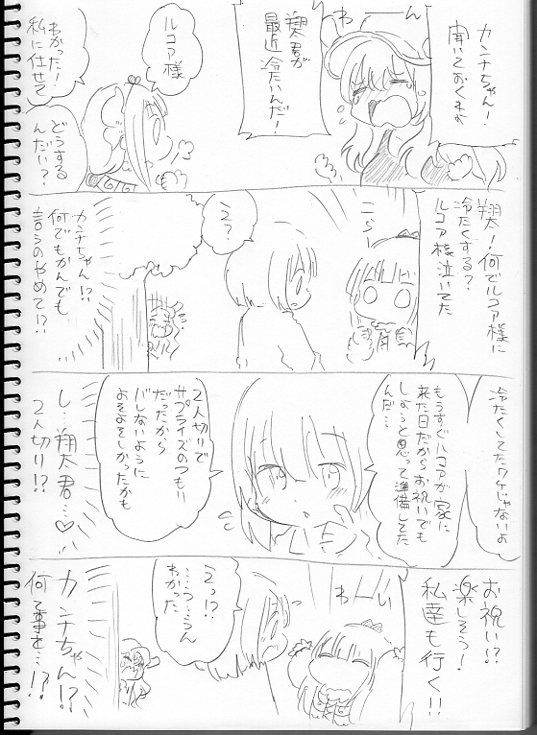 カンナちゃん!
聞いておくれよ
わーーん
翔太君が
最近
冷たいんだ!
ルコア様
わかった!
私に任せて
どうする
んだい?
翔!何でルコア様に
冷たくする?
ルコア様泣いてた
こら
え?
カンナちゃん!?
何でもかんでも
言うのやめて!?
冷たくしてたワケじゃないよ
もうすぐルコアが家に
来た日だからお祝いでも
しようと思って準備してた
んだ…
2人切りで
サプライズのつもり
だったから
バレないように
よそよそしかったかも
し…翔太君…♡
2人切り!?
お祝い!?
楽しそう!
私達も行く!!
わーい
えっ!?
…うっ…うん
わかった
カンナちゃん!?
何て事を…!?